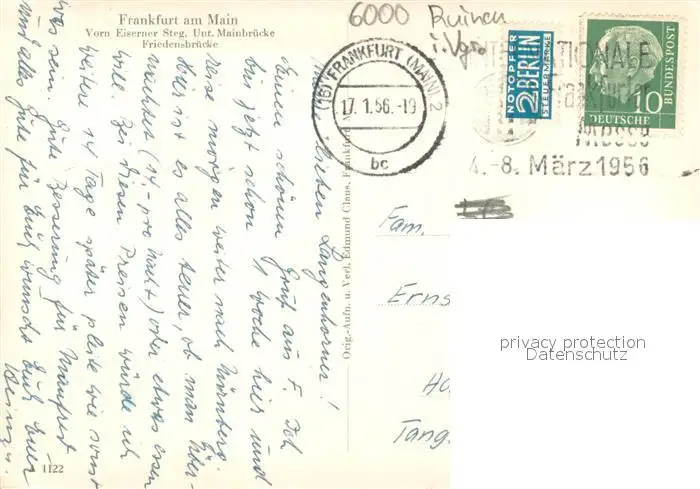 Frankfurt am Main
Vom Eiserner Steg, Unt. Mainbrücke
Friedensbrücke
6000 Ruinen
i. Vgr.
(16) FRANKFURT (MAIN) 2
17.1.56.-19
bc
NOTOPFER
2 BERLIN
STEUERMARKE
DEUTSCHE
BUNDESPOST
10
INTERNATIONALE
Frankfurter
Messe
4.-8. März 1956
lieben Langenhorner!
Einen schönen Gruß aus F. Ich
bin jetzt schon 1 Woche hier und
reise morgen weiter nach Nürnberg.
Hier ist es alles teuer, ob man über-
nachtet (14.- pro Nacht) oder etwas essen
will. Bei diesen Preisen würde ich
weitere 14 Tage später pleite wie sonst
was sein. Gute Besserung für Manfred
und alles Gute für Euch wünscht Euch Euer
Orig.-Aufn. u. Verl. Edmund Claus, Frankfurt
1122
Fam.
Erns
Ho
Tang
privacy protection
Datenschutz